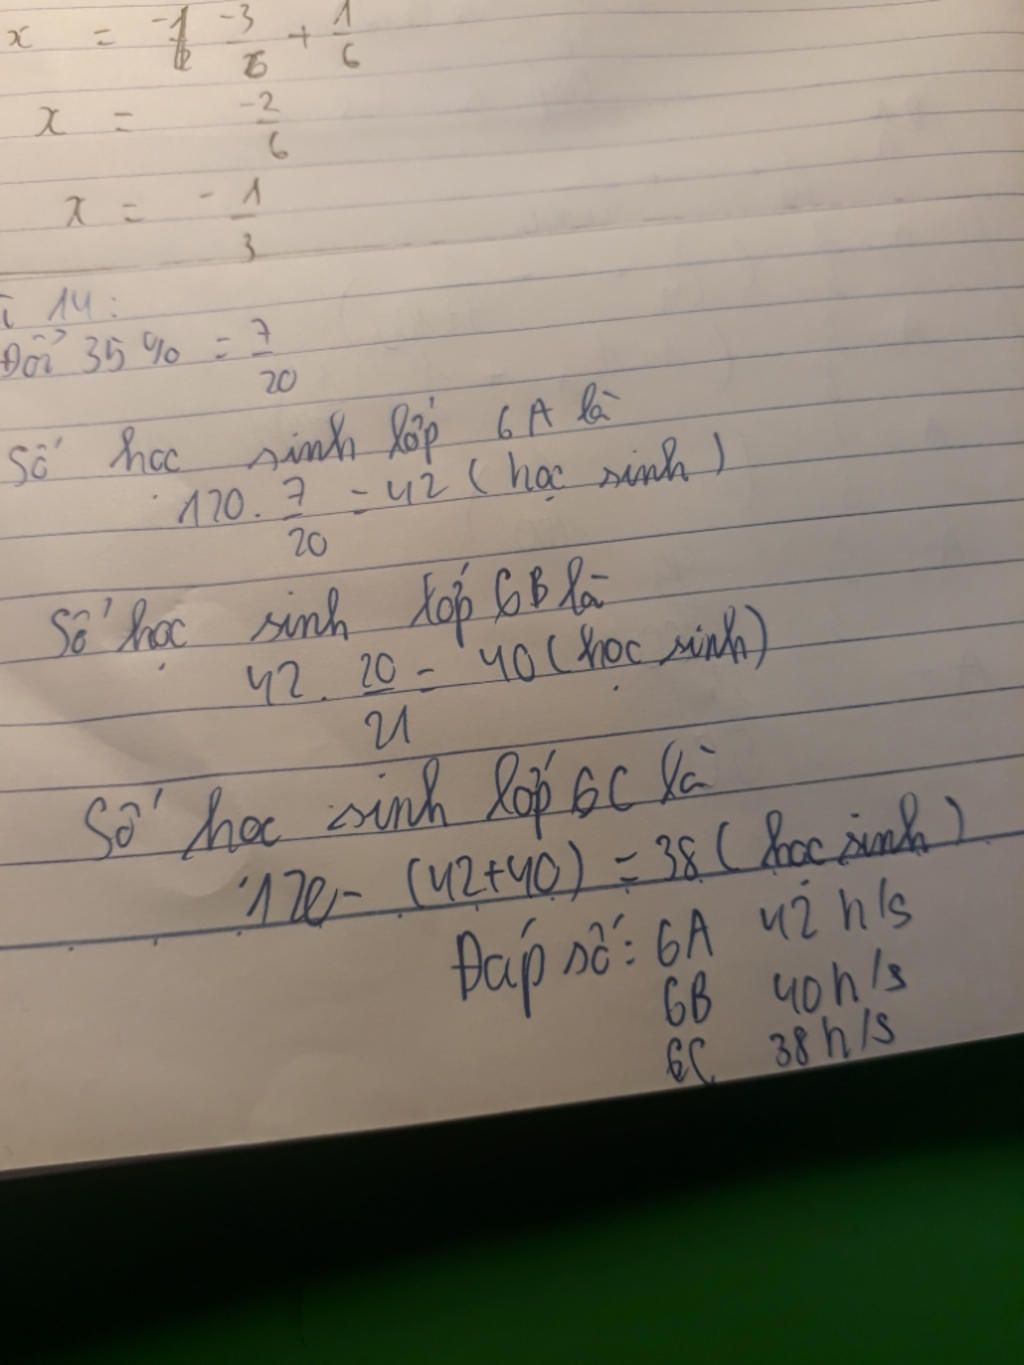 x = -3/6 + 1/6
x = -2/6
x = -1/3
14:
Đổi 35% = 7/20
Số học sinh lớp 6A là
120. 7/20 = 42 (học sinh)
Số học sinh lớp 6B là
42. 20/21 = 40 (học sinh)
Số học sinh lớp 6C là
120 - (42+40) = 38 (học sinh)
Đáp số: 6A 42 h/s
6B 40 h/s
6C 38 h/s